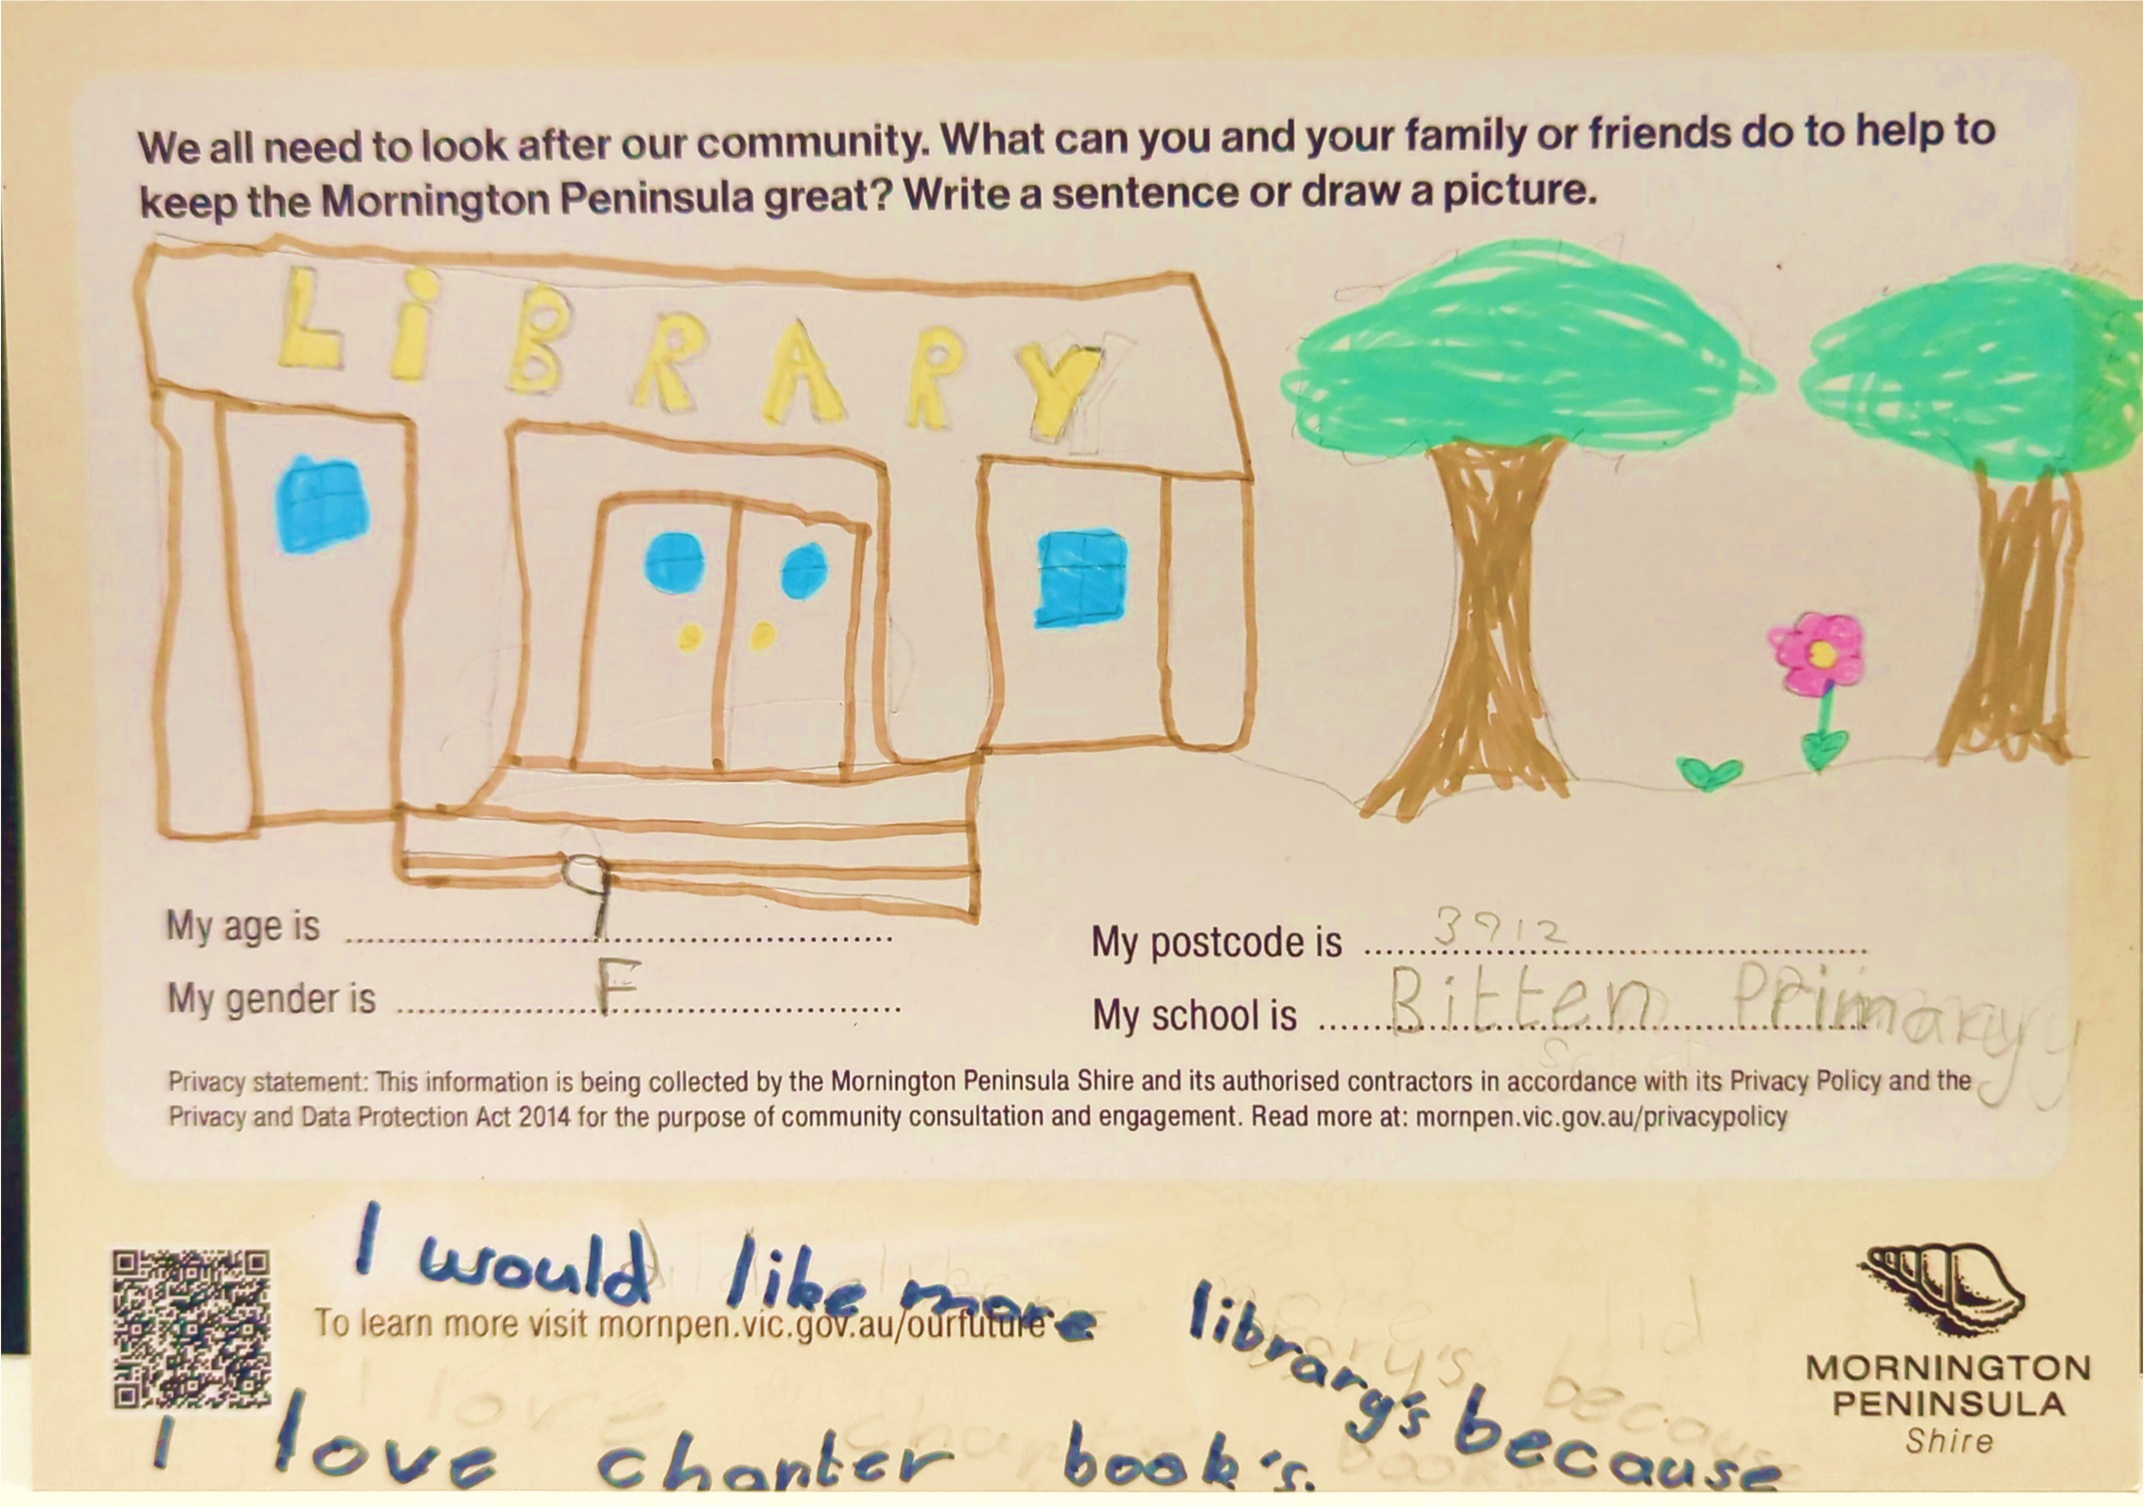 We all need to look after our community. What can you and your family or friends do to help to
keep the Mornington Peninsula great? Write a sentence or draw a picture.
LiBRARY
My age is 9
My gender is F
My postcode is 3912
My school is Bitten Primary
Privacy statement: This information is being collected by the Mornington Peninsula Shire and its authorised contractors in accordance with its Privacy Policy and the
Privacy and Data Protection Act 2014 for the purpose of community consultation and engagement. Read more at: mornpen.vic.gov.au/privacypolicy
I would like more library's because
To learn more visit mornpen.vic.gov.au/ourfuture
I love chapter book's.
MORNINGTON
PENINSULA
Shire